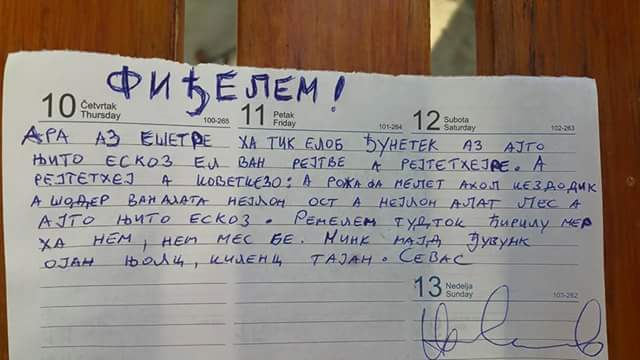 ФИЂЕЛЕМ!
10 Četvrtak Thursday 100-265 11 Petak Friday 101-264 12 Subota Saturday 102-263
АРА АЗ ЕШЕТРЕ ХА ТИК ЕЛОБ ЂУНЕТЕК АЗ АЈТО
ЊИТО ЕСКОЗ ЕЛ ВАН РЕЈТВЕ А РЕЈТЕТХЕЈРЕ. А
РЕЈТЕТХЕЈ А КОВЕТКЕЗО: А РОЖА ФА МЕЛЕТ АХОЛ КЕЗДОДИК
А ШОДЕР ВАН АЛАТА НЕЈЛОН ОСТ А НЕЈЛОН АЛАТ ЛЕС А
АЈТО ЊИТО ЕСКОЗ. РЕМЕЛЕМ ТУДТОК ЋИРИЛУ МЕР
ХА НЕМ, НЕМ МЕС БЕ. МИНК МАЈД ЂУВУНК
ОЈАН ЊОЛЦ, КИЛЕНЦ ТАЈАН. СЕВАС
13 Nedelja Sunday 103-262